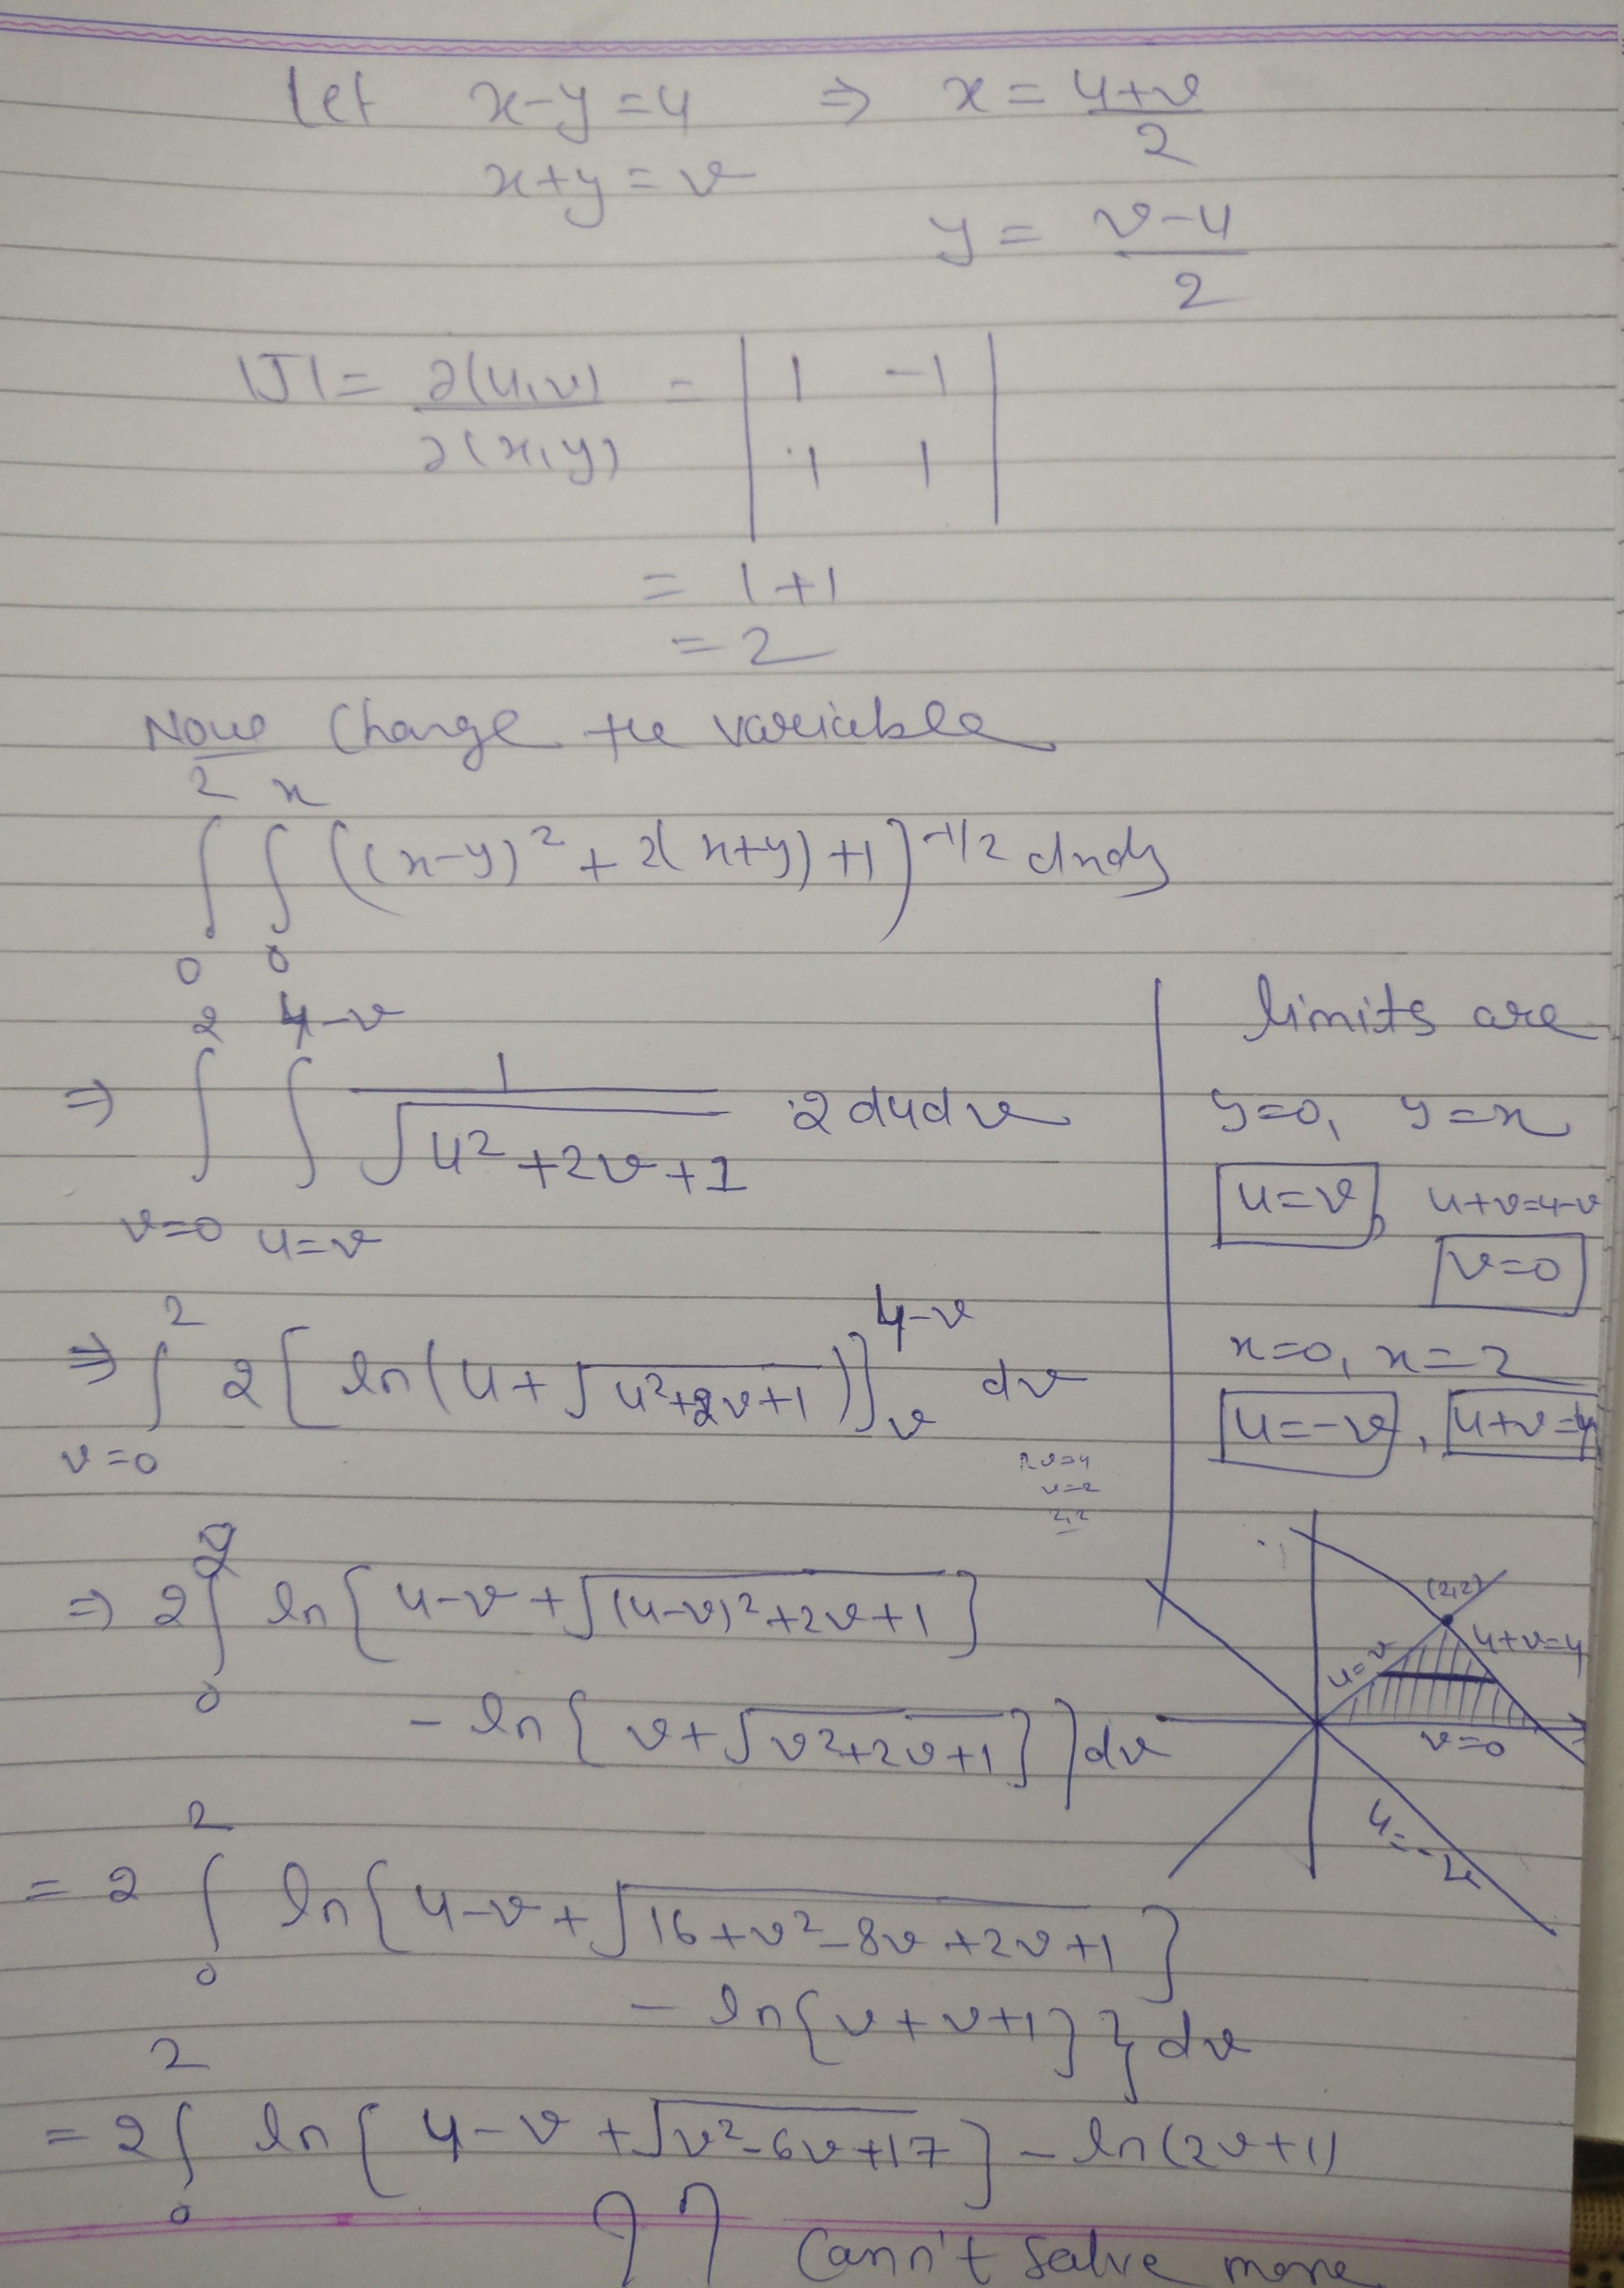 Let x-y=u ⇒ x = (u+v)/2
x+y=v
y = (v-u)/2
|J| = ∂(u,v)/∂(x,y) = | 1 -1 |
| 1 1 |
= 1+1
= 2
Now Change the variable
∫_0^2 ∫_0^x ((x-y)^2 + 2(x+y) +1)^{-1/2} dxdy
⇒ ∫_{v=0}^2 ∫_{u=v}^{4-v} 1/√(u^2+2v+1) ·2 du dv
⇒ ∫_{v=0}^2 2[ln(u+√(u^2+2v+1))]_v^{4-v} dv
2v=4
v=2
2,2
⇒ 2∫_0^2 ln{4-v+√((4-v)^2+2v+1)}
- ln{v+√(v^2+2v+1)}] dv
= 2 ∫_0^2 ln{4-v+√(16+v^2-8v+2v+1)}
- ln{v+v+1}} dv
= 2∫_0^2 ln{4-v+√(v^2-6v+17)} - ln(2v+1)
?? Cann't Solve more
limits are
y=0, y=x
u=v, u+v=u-v
v=0
x=0, x=2
u=-v, u+v=4
(2,2)
u=v
u+v=4
v=0